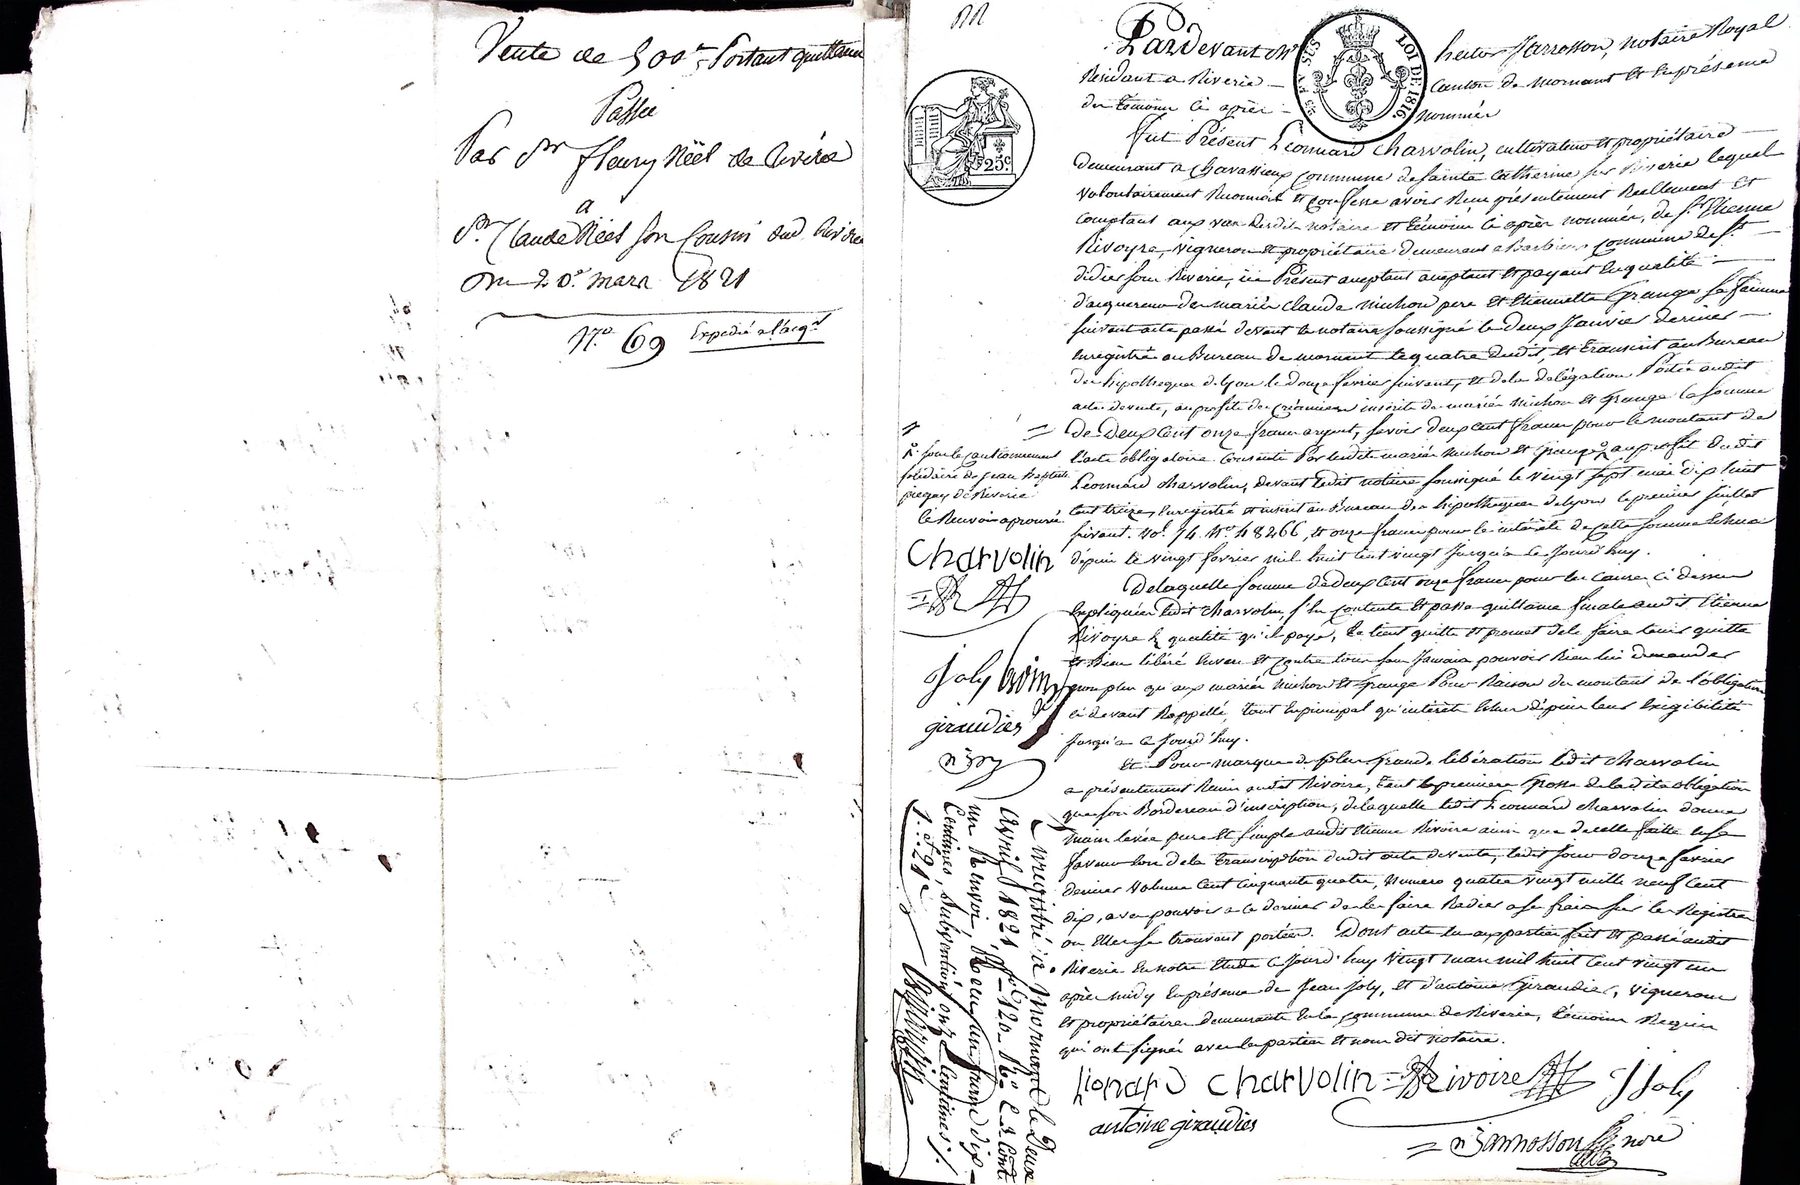 Vente de 500 fr. Portant quittance
Passée
Par Sr. fleury Néel de Rivirie
a
Sr. Claude Néel son Cousin dud. Rivirie
Du 20e. mars 1821
N°. 69 Expédié a l'acqr.
Pardevant Me. hector Jarrosson, notaire Royal
Résidant a Riverie canton de Mornant et En présence
des témoins ci après nommés
LOI DE 1816.
25c.
Fut Présent Léonnard Charvolin, cultivateur et propriétaire
demeurant a Chavassieux commune de Sainte Catherine sur Riverie lequel
volontairement Reconnoit et confesse avoir Reçu présentement Reellement et
comptant aux vue dudit notaire et témoins ci après nommés, de Sr. Etienne
Rivoyre, vigneron et propriétaire demeurant a Barbieux commune de St.
didier sous Riverie, ici Présent acceptant et payant En qualité
d'acquereur de mariés Claude Michon pere et Etiennette Grange sa femme
suivant acte passé devant le notaire soussigné le deux Janvier dernier
enregistré au Bureau de mornant le quatre dudit, et transcrit au Bureau
des hipothèques de lyon le douze fevrier suivant, et de la délégation Portée audit
acte de vente, au profit des créanciers inscrits des mariés Michon et Grange la somme
de Deux Cent onze francs argent, savoir deux cent francs pour le montant de
l'acte obligatoire consentie Par lesdits mariés Michon et Grange au profit dudit
Léonnard Charvolin, devant ledit notaire soussigné le vingt sept mai dix huit
cent treize, Enregistré et inscrit au Bureau des hipothèques de lyon le premier Juillet
suivant. vol. 74. N°. 48266, et onze francs pour les intérêts de cette somme Echus
depuis le vingt fevrier mil huit cent vingt Jusqu'a ce Jourd'huy.
sous le cautionnement
solidaire de Jean Baptiste
de Riverie
le Renvoi aprouvé
Charvolin
Joly
giraudier
De laquelle somme de deux cent onze francs pour les causes ci dessus
Expliquées ledit Charvolin, s'En contente Et passe quittance finale audit Etienne
Rivoyre En qualité qu'il paye, le tient quitte et promet de le faire tenir quitte
et Bien libéré Envers Et contre tous sans Jamais pouvoir Rien lui demander
non plus qu'aux mariés Michon et Grange Pour Raison du montant de l'obligation
ci devant Rappellé, tant En principal qu'intérêts Echus depuis leur Exigibilité
Jusqu'a ce Jourd'huy.
Et Pour marque de plus Grande libération ledit Charvolin
a présentement Remis audit Rivoire, tant la premiere Grosse de ladite obligation
que son Bordereau d'inscription, de laquelle ledit Léonnard Charvolin donne
main levée pure Et simple audit Etienne Rivoire ainsi que de celle faitte en sa
faveur lors de la transcription dudit acte de vente, ledit Jour douze fevrier
dernier volume cent cinquante quatre, numero quatre vingt mille neuf cent
dix, avec pouvoir a ce dernier de les faire Radier a ses frais sur les Registres
ou Elles se trouvent portées. Dont acte lu aux parties fait Et passé audit
Riverie En notre Etude ce Jourd'huy vingt mars mil huit cent vingt un
après midy En présence de Jean Joly, et d'antoine Giraudier, vignerons
Et propriétaires demeurants En la commune de Riverie, témoins Requis
qui ont signés avec les parties et nous dit notaire.
Lionard Charvolin Rivoire J Joly
antoine giraudier
Jarrosson nore
Enregistré à Mornant le Deux
avril 1821, fo. 120 Ro. C. 3 Cont.
un Renvoi, Reçu un franc dix
Centimes, Subvention onze Centimes
1. f. 21 c.